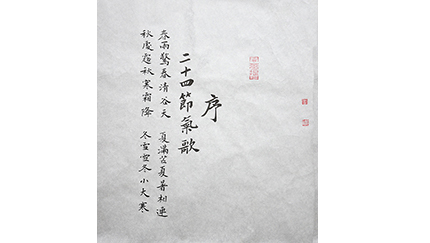 序
二十四節氣歌
春雨驚春清谷天 夏滿芒夏暑相連
秋處露秋寒霜降 冬雪雪冬小大寒